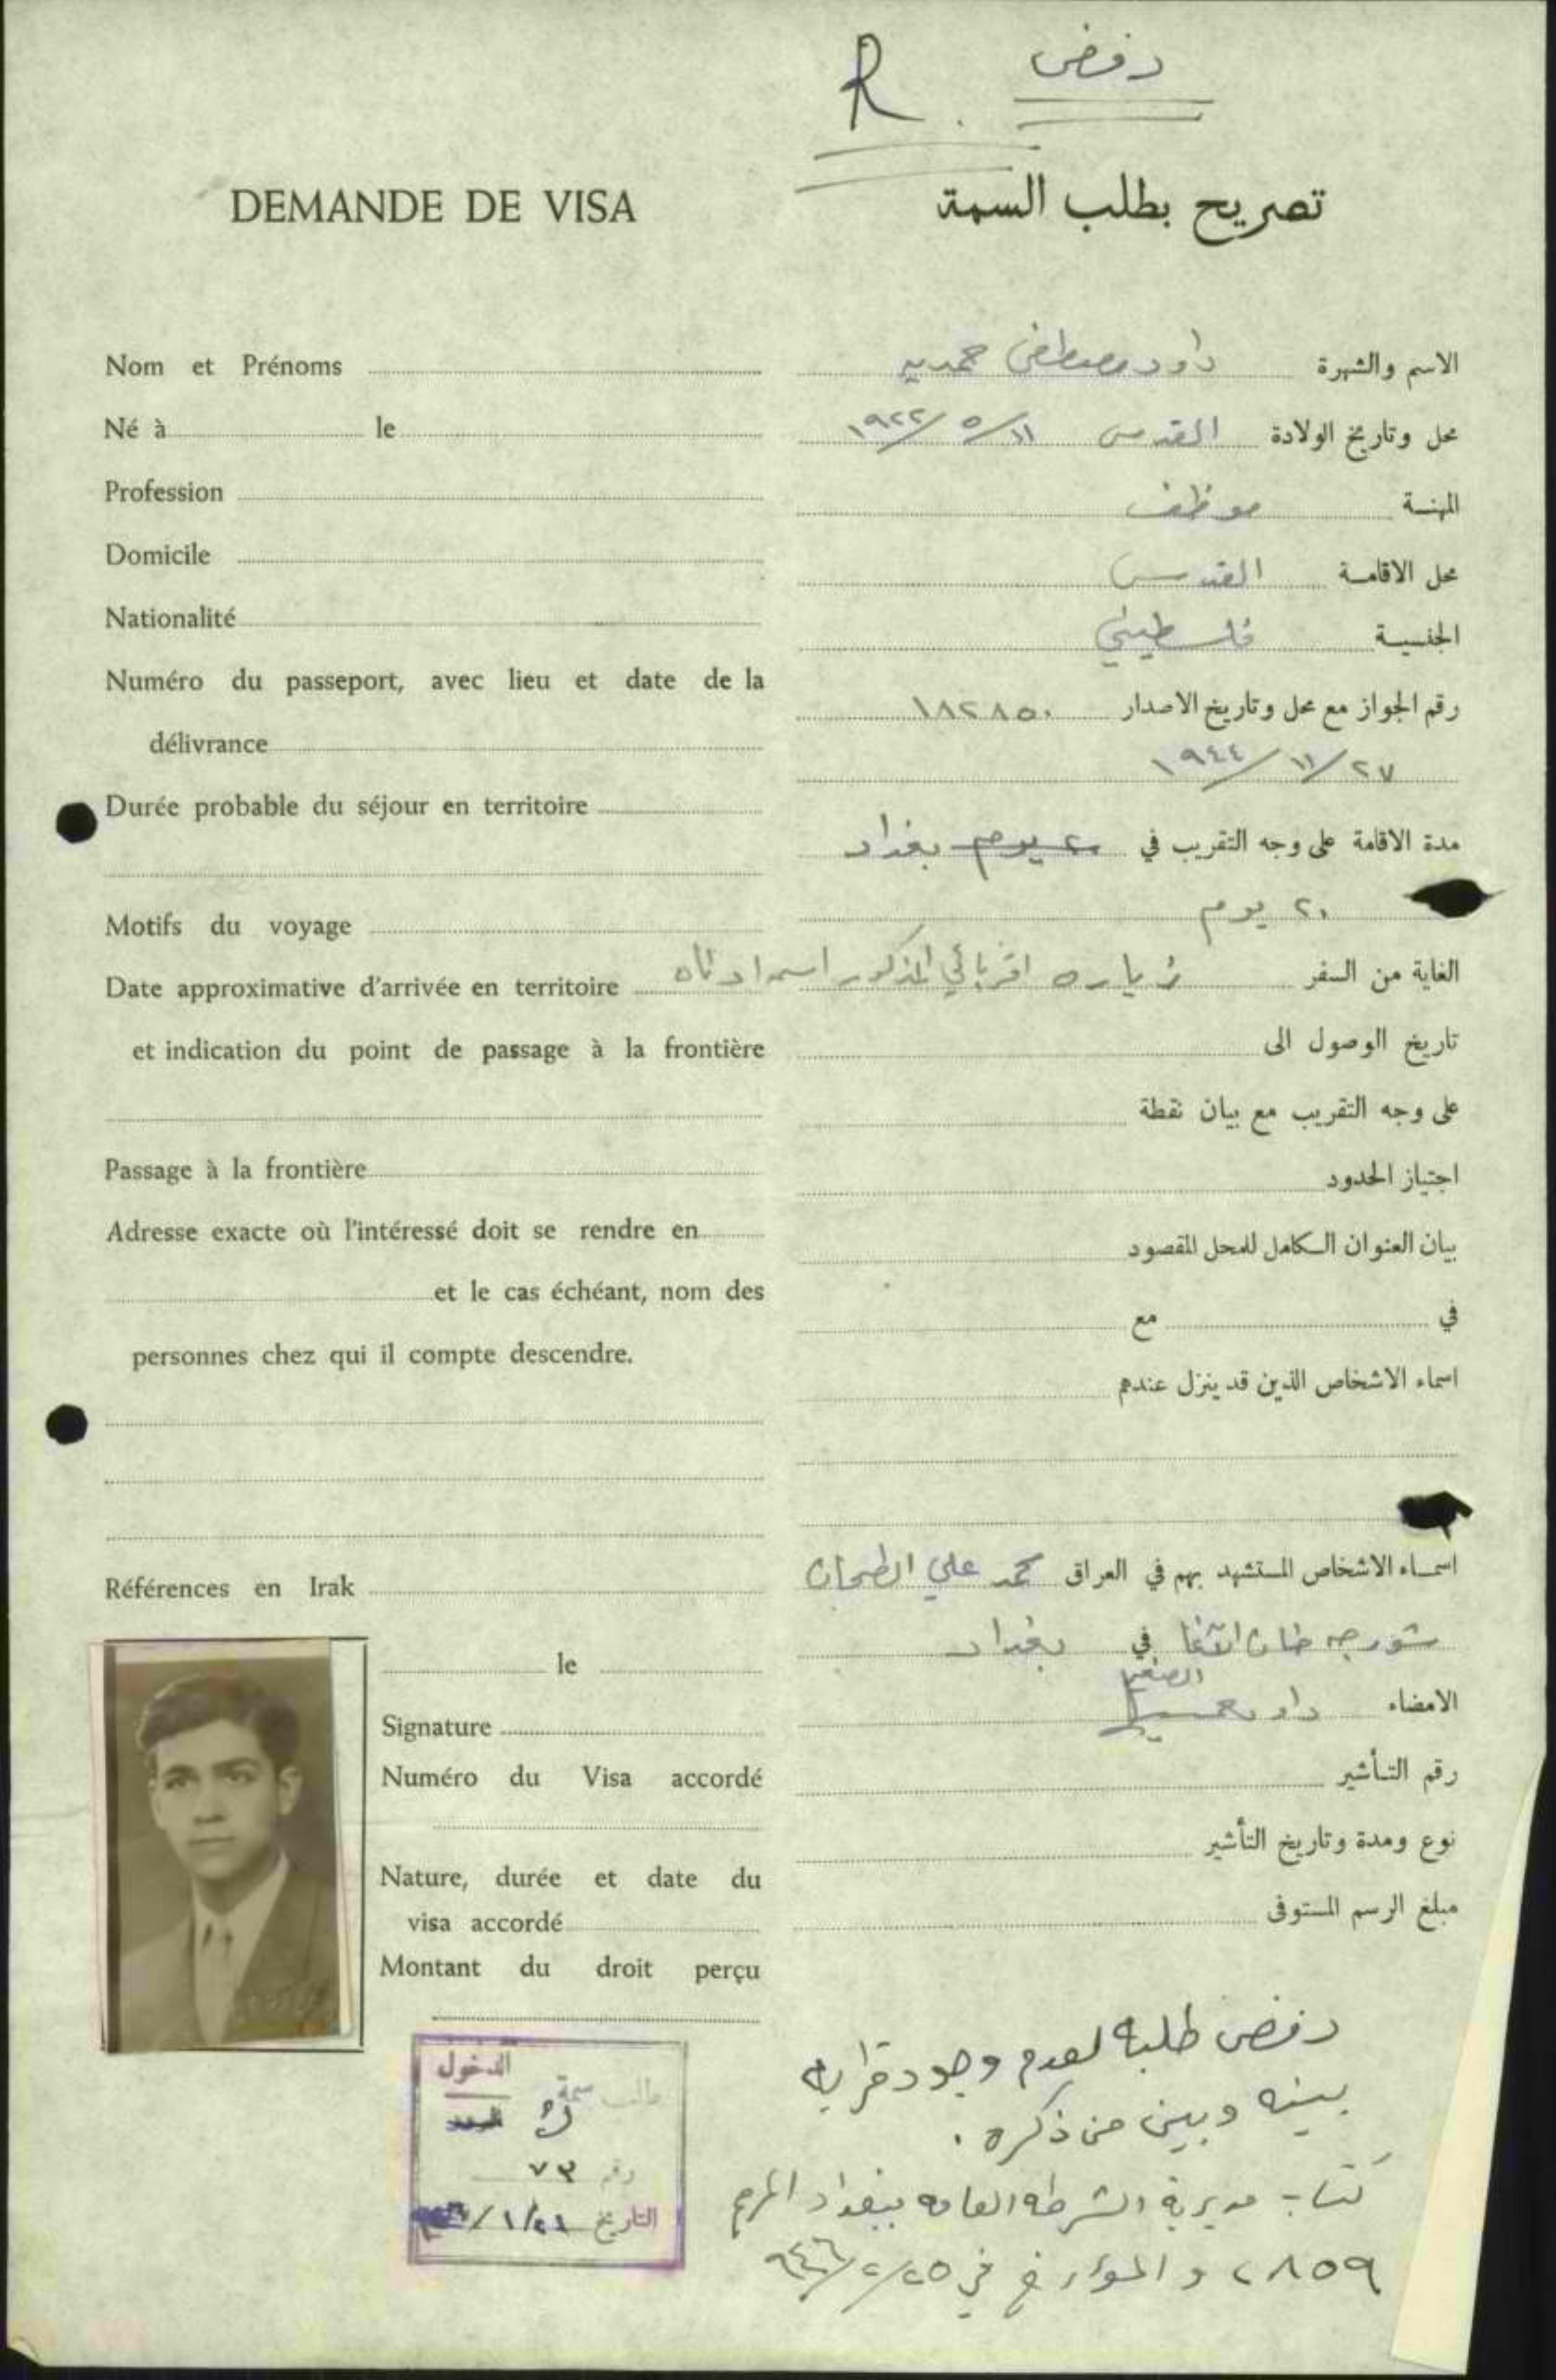 R. رفض
DEMANDE DE VISA
تصريح بطلب السمة
Nom et Prénoms
الاسم والشهرة داود مصطفى
Né à le
محل وتاريخ الولادة القدس ١١/٥/١٩٢٢
Profession
المهنـة موظف
Domicile
محل الاقامـة القدس
Nationalité
الجنسيـة فلسطيني
Numéro du passeport, avec lieu et date de la
délivrance
رقم الجواز مع محل وتاريخ الاصدار ١٨٢٨٥٠
٢٧/١١/١٩٤٤
Durée probable du séjour en territoire
مدة الاقامة على وجه التقريب في ٢٠ يوم بغداد
٢٠ يوم
Motifs du voyage
الغاية من السفر زياره اقربائي المذكور اسمه ادناه
Date approximative d'arrivée en territoire
et indication du point de passage à la frontière
تاريخ الوصول الى
على وجه التقريب مع بيان نقطة
Passage à la frontière
اجتياز الحدود
Adresse exacte où l'intéressé doit se rendre en
et le cas échéant, nom des
personnes chez qui il compte descendre.
بيان العنوان الـكامل للمحل المقصود
في مع
اسماء الاشخاص الذين قد ينزل عندهم
Références en Irak
اسمـاء الاشخاص المـستشهد بهم في العراق محمد علي الطحان
شورجه خان الآغا في بغداد
الصغير
le
Signature
الامضاء داود
Numéro du Visa accordé
رقم التـأشير
Nature, durée et date du
visa accordé
نوع ومدة وتاريخ التأشير
Montant du droit perçu
مبلغ الرسم المـستوفى
رفض طلبه لعدم وجود قرابه
بينه وبين من ذكره .
كتاب مديرية الشرطه العامه ببغداد المرقم
٢٨٥٩ والمؤرخ في ٢٥/٢/٩٤٦
الدخول
طالب سمة
رقم ٧٣
التاريخ ٢١/١/